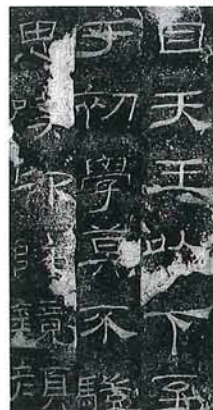 自天王以下至
于初學莫不騩
思嘆卬師鏡顏